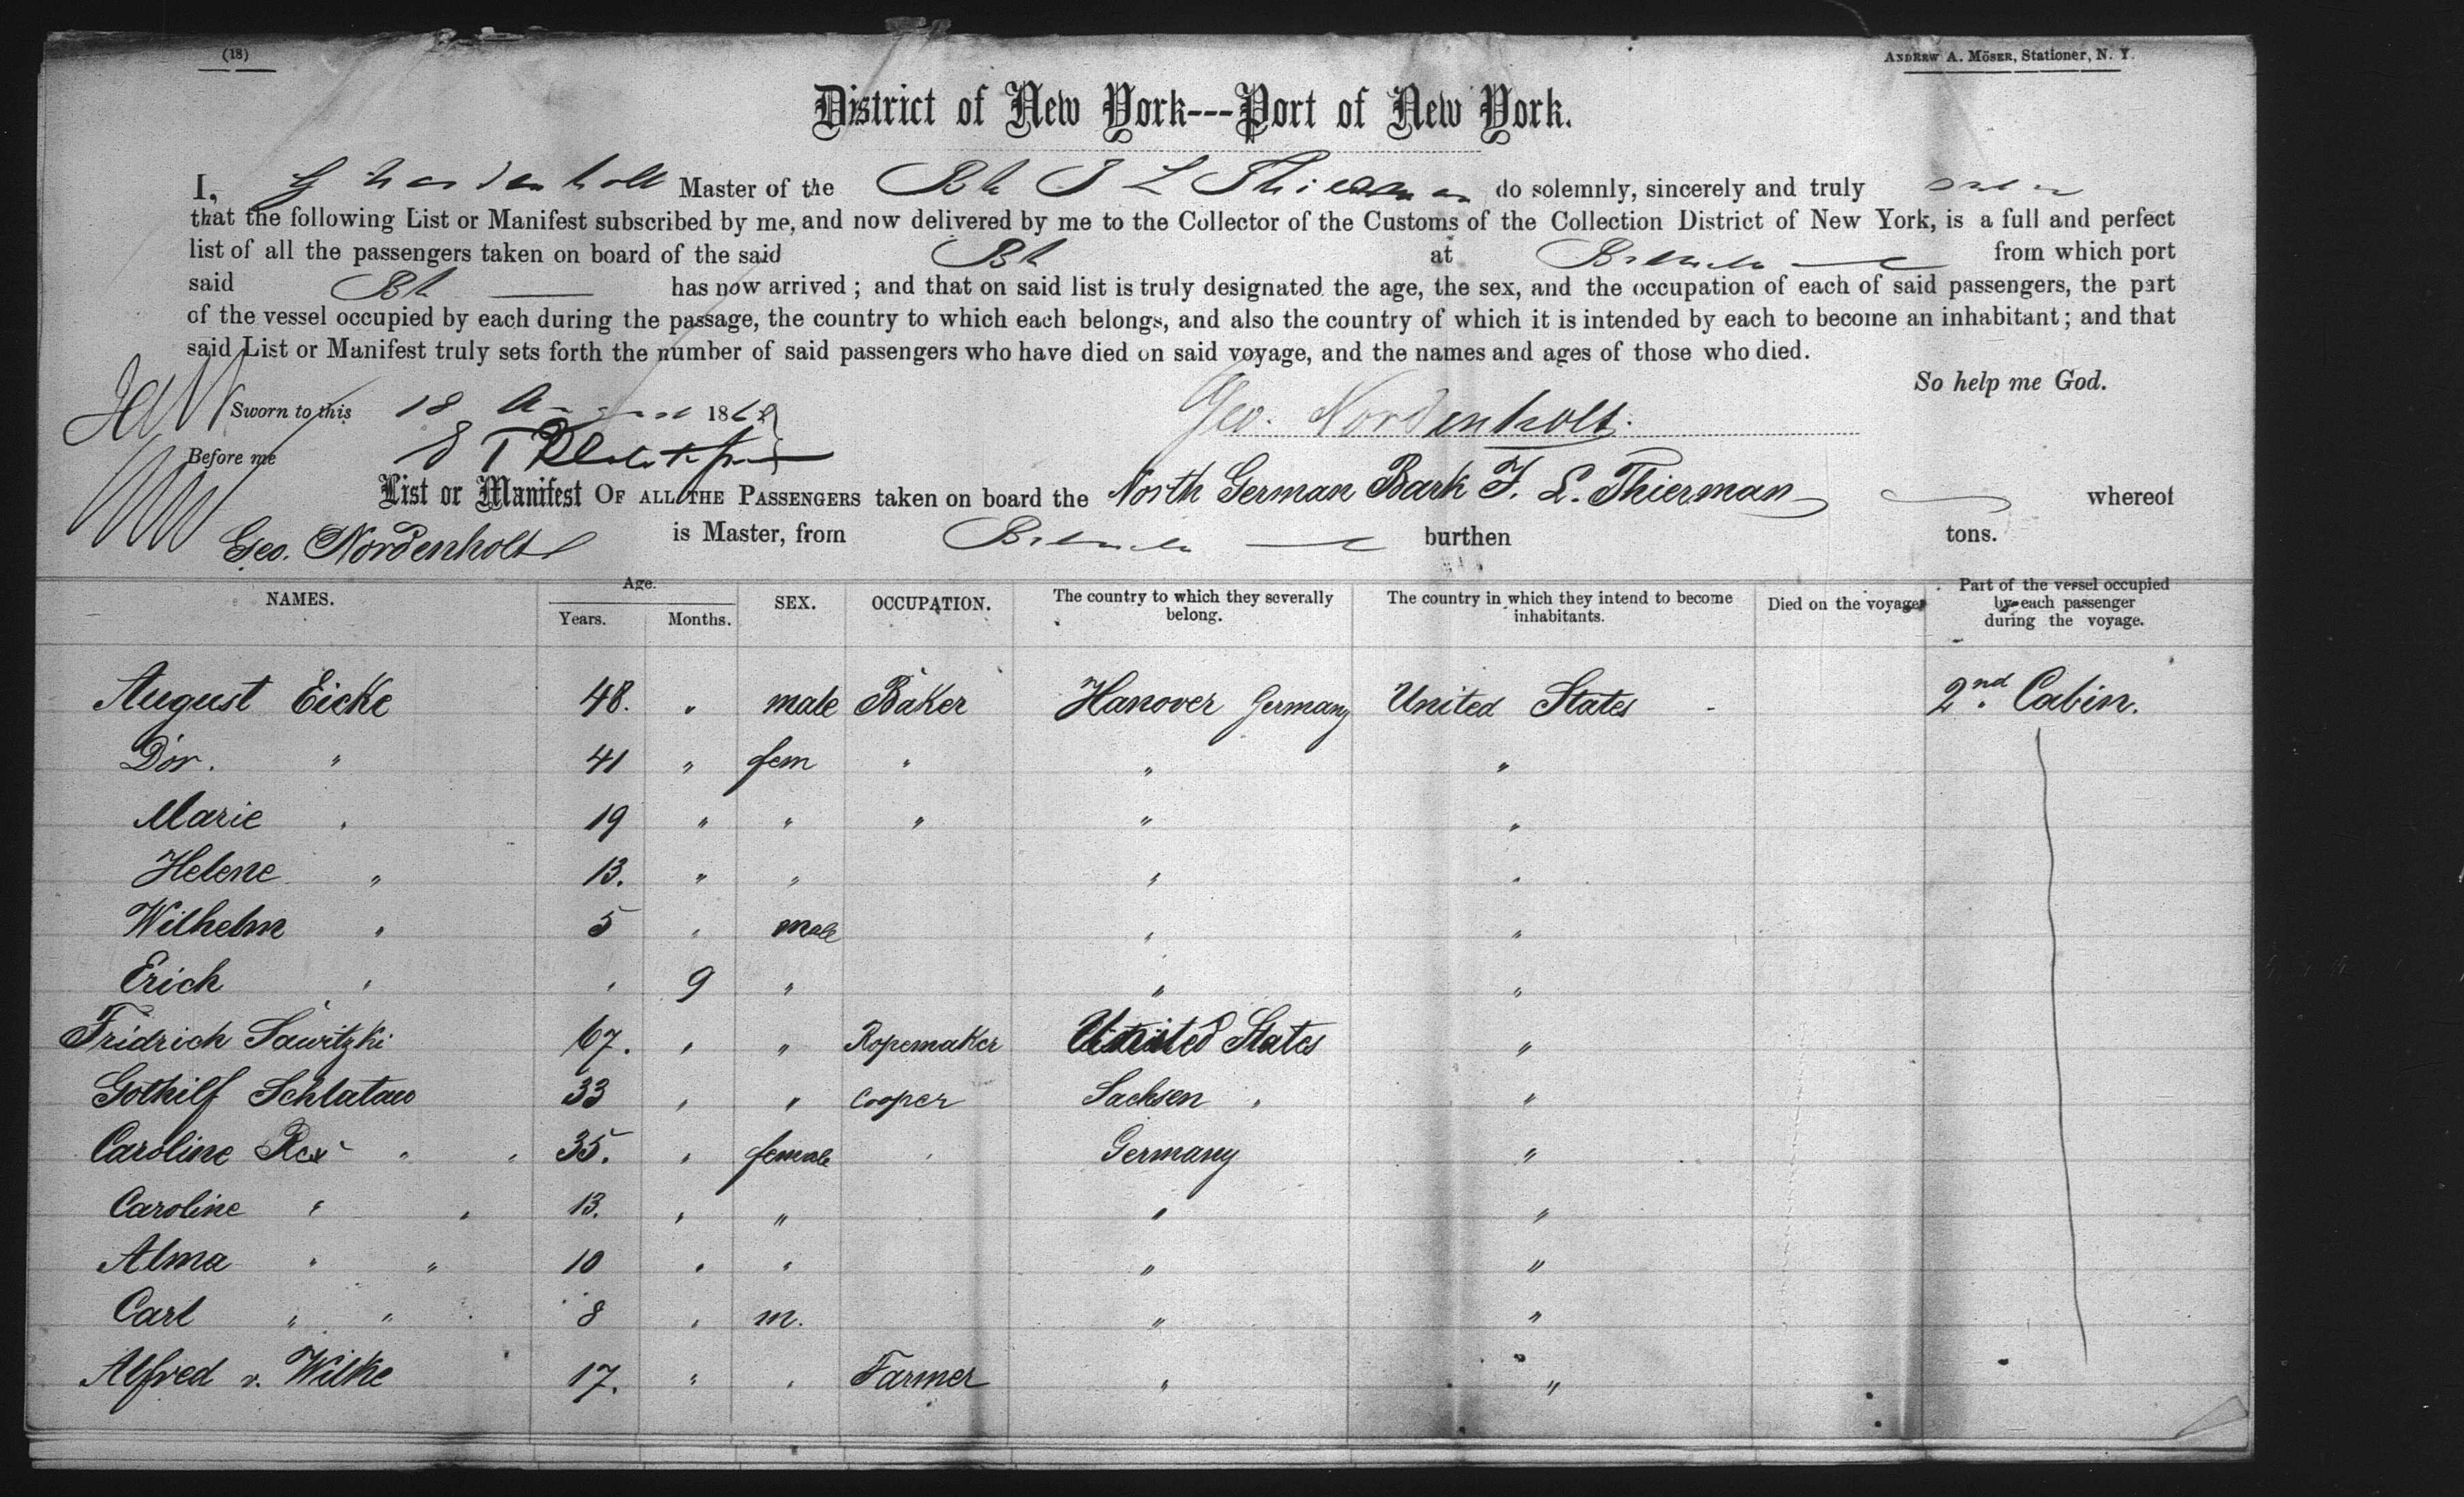 (18)
ANDREW A. MÖSER, Stationer, N. Y.
District of New York---Port of New York.
I, G Nordenholt Master of the Bk F L Thierman do solemnly, sincerely and truly
that the following List or Manifest subscribed by me, and now delivered by me to the Collector of the Customs of the Collection District of New York, is a full and perfect
list of all the passengers taken on board of the said Bk at Bremen from which port
said Bk has now arrived; and that on said list is truly designated the age, the sex, and the occupation of each of said passengers, the part
of the vessel occupied by each during the passage, the country to which each belongs, and also the country of which it is intended by each to become an inhabitant; and that
said List or Manifest truly sets forth the number of said passengers who have died on said voyage, and the names and ages of those who died.
So help me God.
Sworn to this 18 August 186
Geo. Nordenholt.
Before me
List or Manifest OF ALL THE PASSENGERS taken on board the North German Bark F. L. Thierman whereof
Geo. Nordenholt is Master, from Bremen burthen tons.
NAMES. Age. Years. Months. SEX. OCCUPATION. The country to which they severally belong. The country in which they intend to become inhabitants. Died on the voyage. Part of the vessel occupied by each passenger during the voyage.
August Eicke 48. " male Baker Hanover Germany United States - 2nd. Cabin.
Dor. " 41 " fem " " "
Marie " 19 " " " " "
Helene " 13. " " " "
Wilhelm " 5 " male " "
Erich " " 9 " " "
Fridrich Sawitzki 67. " " Ropemaker United States "
Gothilf Schlatau 33 " " Cooper Sachsen " "
Caroline Rex " " 35. " female " Germany "
Caroline " " 13. " " " "
Alma " " 10 " " " "
Carl " " 8 " m. " "
Alfred v. Wilke 17. " " Farmer " "